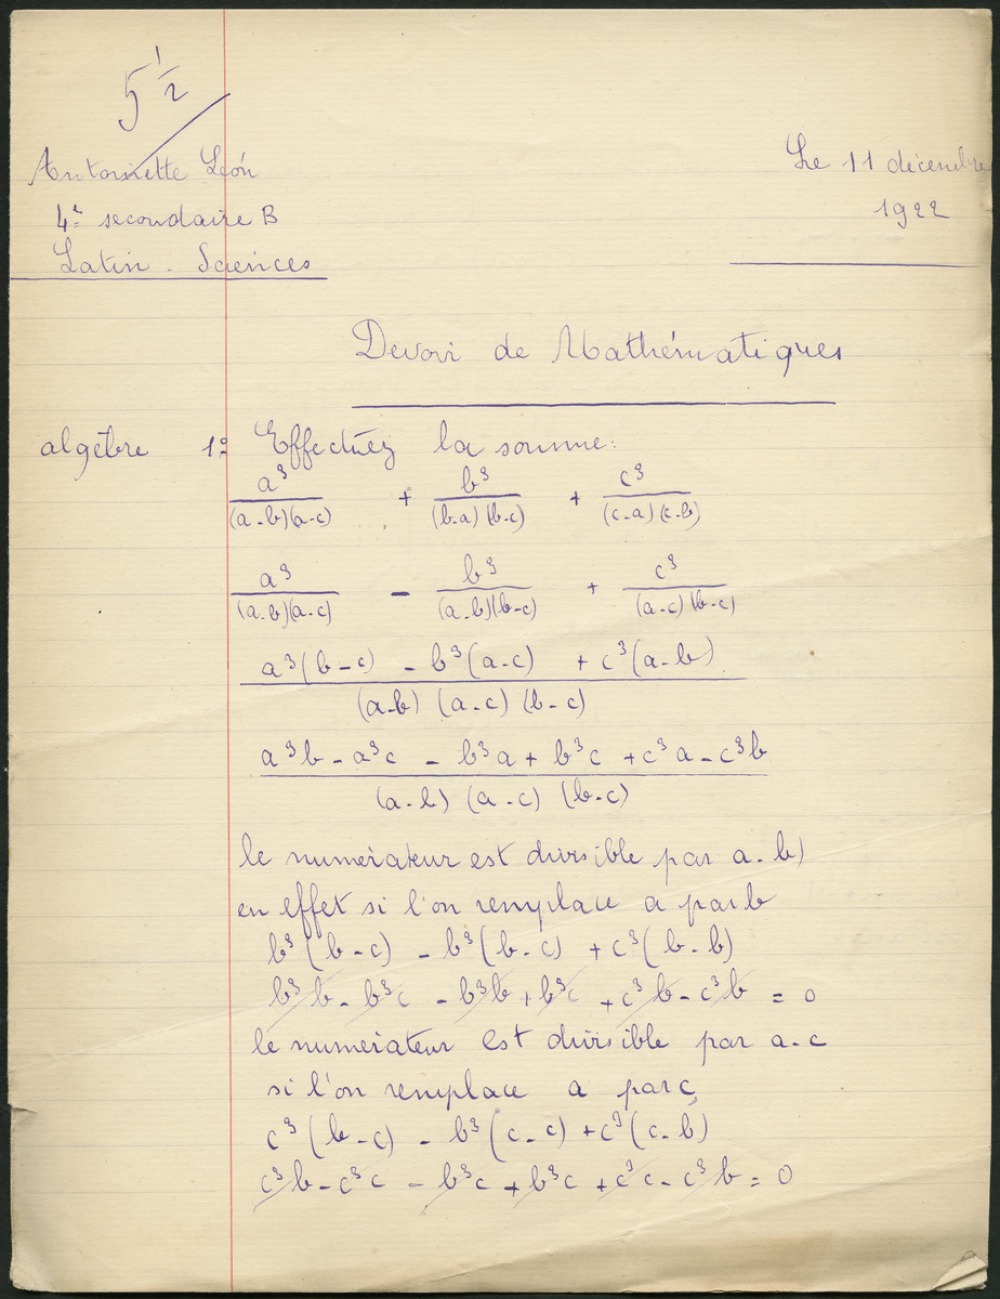 5 1/2
Antoinette León
4e secondaire B
Latin - Sciences
Le 11 décembre
1922
Devoir de Mathématiques
algèbre 1º Effectuez la somme:
a³/(a-b)(a-c) + b³/(b-a)(b-c) + c³/(c-a)(c-b)
a³/(a-b)(a-c) - b³/(a-b)(b-c) + c³/(a-c)(b-c)
a³(b-c) - b³(a-c) + c³(a-b)
(a-b) (a-c) (b-c)
a³b - a³c - b³a + b³c + c³a - c³b
(a-b) (a-c) (b-c)
le numérateur est divisible par a-b)
en effet si l'on remplace a par b
b³(b-c) - b³(b-c) + c³(b-b)
b³b - b³c - b³b + b³c + c³b - c³b = 0
le numérateur est divisible par a-c
si l'on remplace a par c
c³(b-c) - b³(c-c) + c³(c-b)
c³b - c³c - b³c + b³c + c³c - c³b = 0